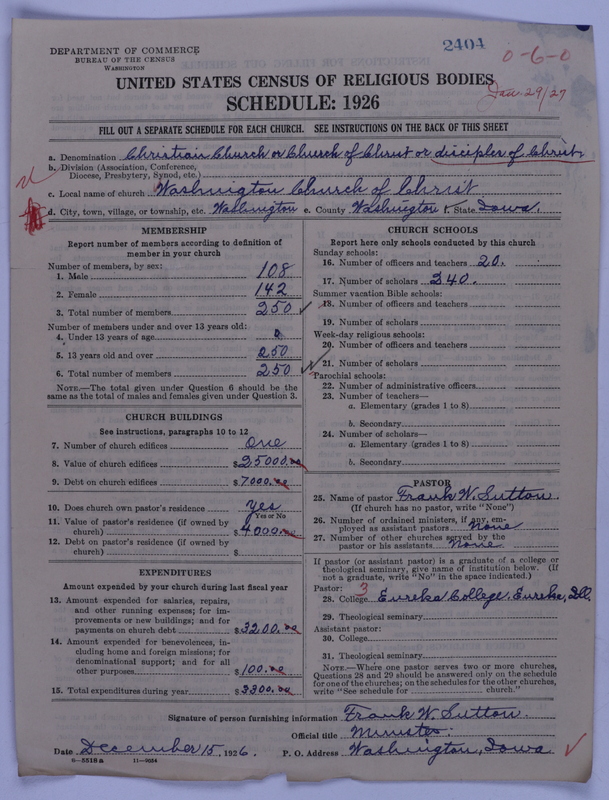 2404
0-6-0
Jan. 29/27
DEPARTMENT OF COMMERCE
BUREAU OF THE CENSUS
WASHINGTON
UNITED STATES CENSUS OF RELIGIOUS BODIES
SCHEDULE: 1926
FILL OUT A SEPARATE SCHEDULE FOR EACH CHURCH. SEE INSTRUCTIONS ON THE BACK OF THIS SHEET
a. Denomination Christian Church or Church of Christ or disciples of Christ
b. Division (Association, Conference, Diocese, Presbytery, Synod, etc.)
c. Local name of church Washington Church of Christ
d. City, town, village, or township, etc. Washington e. County Washington f. State Iowa.
MEMBERSHIP
Report number of members according to definition of
member in your church
Number of members, by sex:
1. Male 108
2. Female 142
3. Total number of members 250
Number of members under and over 13 years old:
4. Under 13 years of age
5. 13 years old and over 250
6. Total number of members 250
NOTE.—The total given under Question 6 should be the
same as the total of males and females given under Question 3.
CHURCH BUILDINGS
See instructions, paragraphs 10 to 12
7. Number of church edifices one
8. Value of church edifices $25000.00
9. Debt on church edifices $7000.00
10. Does church own pastor's residence yes
Yes or No
11. Value of pastor's residence (if owned by
church) $4000.00
12. Debt on pastor's residence (if owned by
church) $
EXPENDITURES
Amount expended by your church during last fiscal year
13. Amount expended for salaries, repairs,
and other running expenses; for im-
provements or new buildings; and for
payments on church debt $3200.00
14. Amount expended for benevolences, in-
cluding home and foreign missions; for
denominational support; and for all
other purposes $100.00
15. Total expenditures during year $3300.00
CHURCH SCHOOLS
Report here only schools conducted by this church
Sunday schools:
16. Number of officers and teachers 20.
17. Number of scholars 240.
Summer vacation Bible schools:
18. Number of officers and teachers
19. Number of scholars
Week-day religious schools:
20. Number of officers and teachers
21. Number of scholars
Parochial schools:
22. Number of administrative officers
23. Number of teachers—
a. Elementary (grades 1 to 8)
b. Secondary
24. Number of scholars—
a. Elementary (grades 1 to 8)
b. Secondary
PASTOR
25. Name of pastor Frank W. Sutton.
(If church has no pastor, write "None")
26. Number of ordained ministers, if any, em-
ployed as assistant pastors None
27. Number of other churches served by the
pastor or his assistants None
If pastor (or assistant pastor) is a graduate of a college or
theological seminary, give name of institution below. (If
not a graduate, write "No" in the space indicated.)
Pastor: 3
28. College Eureka College, Eureka, Ill.
29. Theological seminary
Assistant pastor:
30. College
31. Theological seminary
NOTE.—Where one pastor serves two or more churches,
Questions 28 and 29 should be answered only on the schedule
for one of the churches; on the schedules for the other churches,
write "See schedule for church."
Signature of person furnishing information Frank W. Sutton.
Official title Minister.
Date December 15, 1926. P. O. Address Washington, Iowa
8—5518a 11—9034